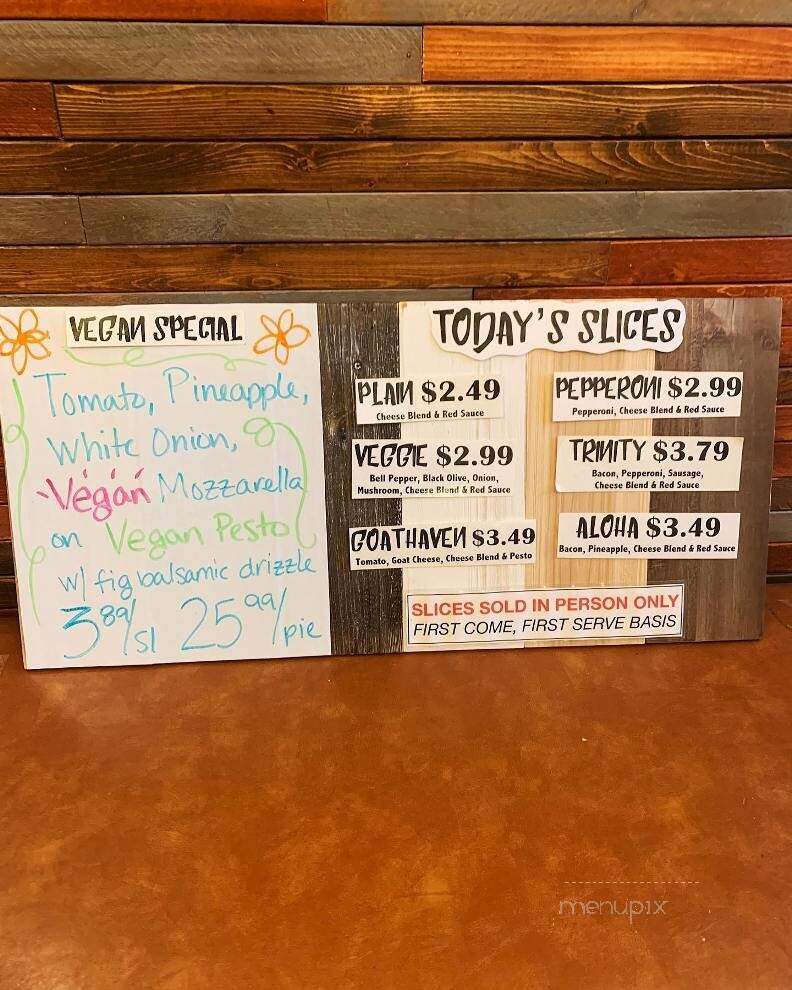 VEGAN SPECIAL
Tomato, Pineapple,
White Onion,
Vegan Mozzarella
on Vegan Pesto
w/ fig balsamic drizzle
3.89/sl 25.99/pie
TODAY'S SLICES
PLAIN $2.49
Cheese Blend & Red Sauce
PEPPERONI $2.99
Pepperoni, Cheese Blend & Red Sauce
VEGGIE $2.99
Bell Pepper, Black Olive, Onion,
Mushroom, Cheese Blend & Red Sauce
TRINITY $3.79
Bacon, Pepperoni, Sausage,
Cheese Blend & Red Sauce
GOATHAVEN $3.49
Tomato, Goat Cheese, Cheese Blend & Pesto
ALOHA $3.49
Bacon, Pineapple, Cheese Blend & Red Sauce
SLICES SOLD IN PERSON ONLY
FIRST COME, FIRST SERVE BASIS
menupix